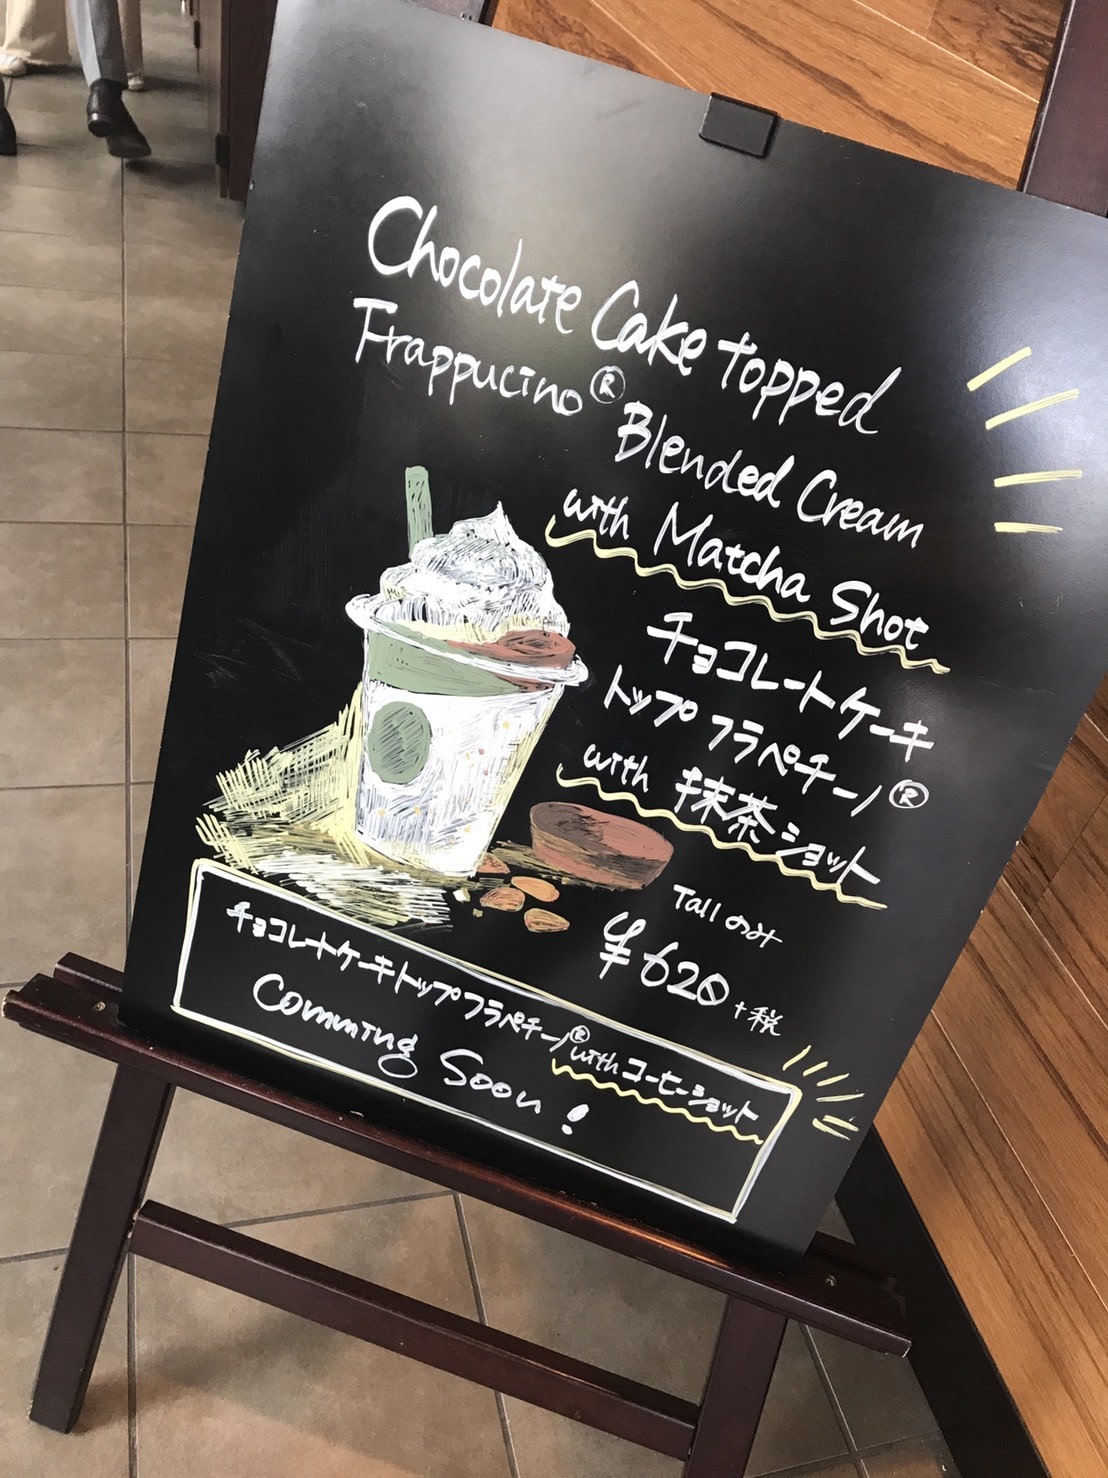 Chocolate Cake topped
Frappucino® Blended Cream
with Matcha Shot
チョコレートケーキ
トップ フラペチーノ®
with 抹茶ショット
Tall のみ
¥620 +税
チョコレートケーキトップフラペチーノ® with コーヒーショット
Comming Soon!